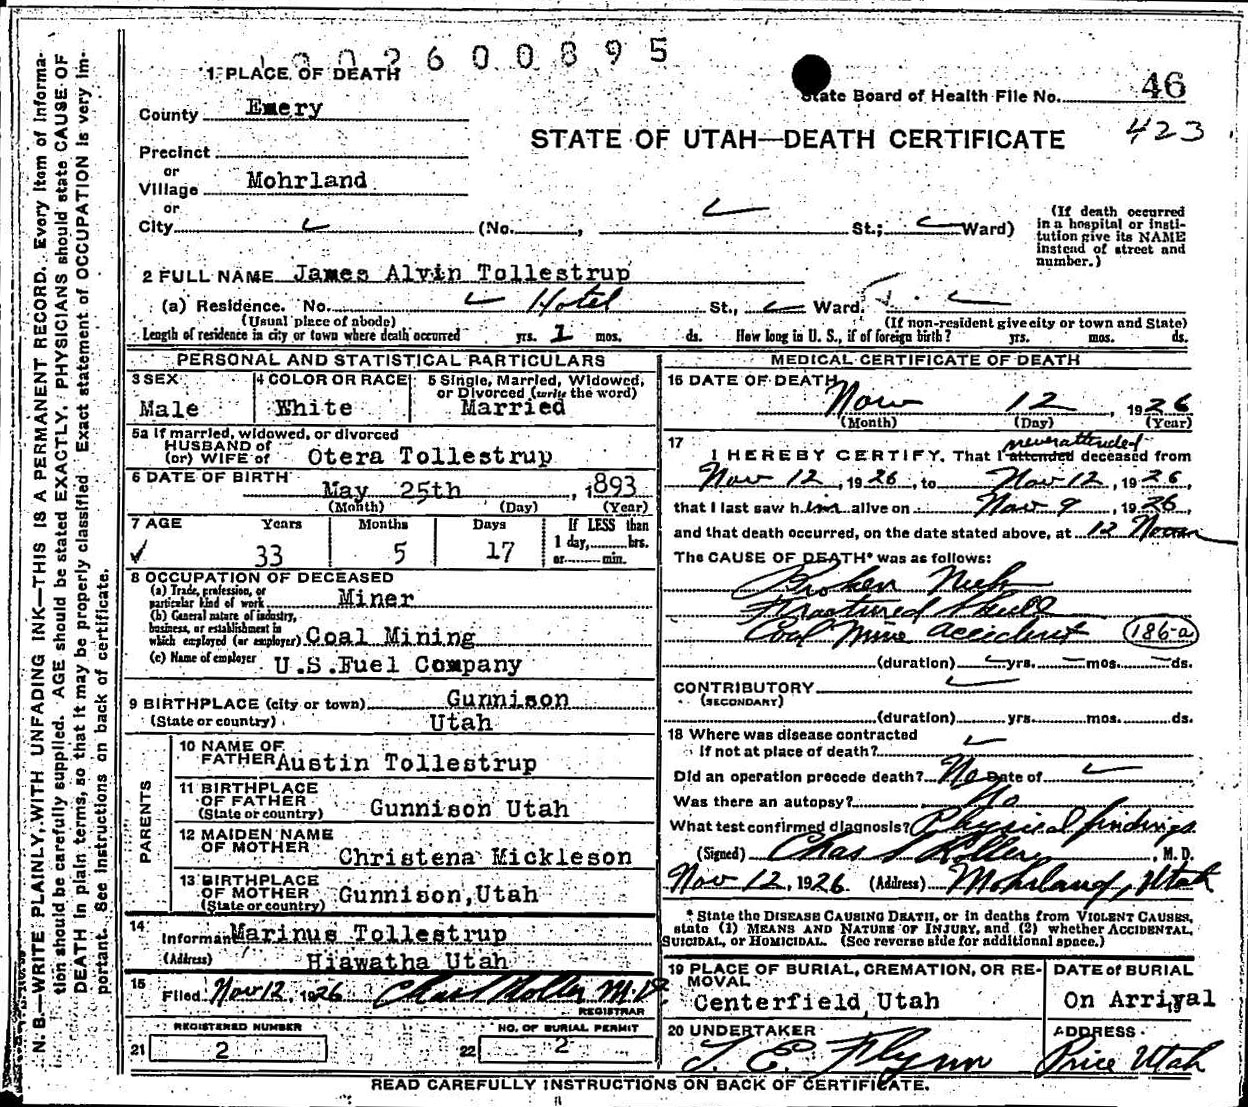 N. B.—WRITE PLAINLY, WITH UNFADING INK—THIS IS A PERMANENT RECORD. Every item of informa-
tion should be carefully supplied. AGE should be stated EXACTLY. PHYSICIANS should state CAUSE OF
DEATH in plain terms, so that it may be properly classified. Exact statement of OCCUPATION is very im-
portant. See instructions on back of certificate.
2600895
1 PLACE OF DEATH
County Emery
Precinct
or
Village Mohrland
or
City (No. , St.; Ward)
State Board of Health File No. 46
423
STATE OF UTAH—DEATH CERTIFICATE
(If death occurred
in a hospital or insti-
tution give its NAME
instead of street and
number.)
2 FULL NAME James Alvin Tollestrup
(a) Residence. No. Hotel St., Ward.
(Usual place of abode) (If non-resident give city or town and State)
Length of residence in city or town where death occurred yrs. 1 mos. ds. How long in U. S., if of foreign birth? yrs. mos. ds.
PERSONAL AND STATISTICAL PARTICULARS
3 SEX
Male
4 COLOR OR RACE
White
5 Single, Married, Widowed,
or Divorced (write the word)
Married
5a If married, widowed, or divorced
HUSBAND of
(or) WIFE of Otera Tollestrup
6 DATE OF BIRTH
May 25th , 1893
(Month) (Day) (Year)
7 AGE Years Months Days If LESS than
1 day, hrs.
or min.
33 5 17
8 OCCUPATION OF DECEASED
(a) Trade, profession, or
particular kind of work Miner
(b) General nature of industry,
business, or establishment in
which employed (or employer) Coal Mining
(c) Name of employer U.S.Fuel Company
9 BIRTHPLACE (city or town) Gunnison
(State or country) Utah
PARENTS
10 NAME OF
FATHER Austin Tollestrup
11 BIRTHPLACE
OF FATHER
(State or country) Gunnison Utah
12 MAIDEN NAME
OF MOTHER Christena Mickleson
13 BIRTHPLACE
OF MOTHER
(State or country) Gunnison,Utah
14
Informant Marinus Tollestrup
(Address) Hiawatha Utah
15
Filed Nov 12, 1926 Chas Koller M.D
REGISTRAR
REGISTERED NUMBER
21 2
NO. OF BURIAL PERMIT
22 2
MEDICAL CERTIFICATE OF DEATH
16 DATE OF DEATH
Nov 12 , 1926
(Month) (Day) (Year)
17 never attended
I HEREBY CERTIFY, That I attended deceased from
Nov 12, 1926, to Nov 12, 1926,
that I last saw him alive on Nov 9, 1926,
and that death occurred, on the date stated above, at 12 Noon
The CAUSE OF DEATH* was as follows:
Broken Neck
Fractured Skull
Coal Mine accident 186-a
(duration) yrs. mos. ds.
CONTRIBUTORY
(SECONDARY)
(duration) yrs. mos. ds.
18 Where was disease contracted
if not at place of death?
Did an operation precede death? No Date of
Was there an autopsy? No
What test confirmed diagnosis? Physical findings
(Signed) Chas Koller, M. D.
Nov 12, 1926. (Address) Mohrland, Utah
* State the DISEASE CAUSING DEATH, or in deaths from VIOLENT CAUSES,
state (1) MEANS AND NATURE OF INJURY, and (2) whether ACCIDENTAL,
SUICIDAL, or HOMICIDAL. (See reverse side for additional space.)
19 PLACE OF BURIAL, CREMATION, OR RE-
MOVAL
Centerfield,Utah
DATE of BURIAL
On Arrival
19
20 UNDERTAKER
T. E. Flynn
ADDRESS
Price Utah
READ CAREFULLY INSTRUCTIONS ON BACK OF CERTIFICATE.